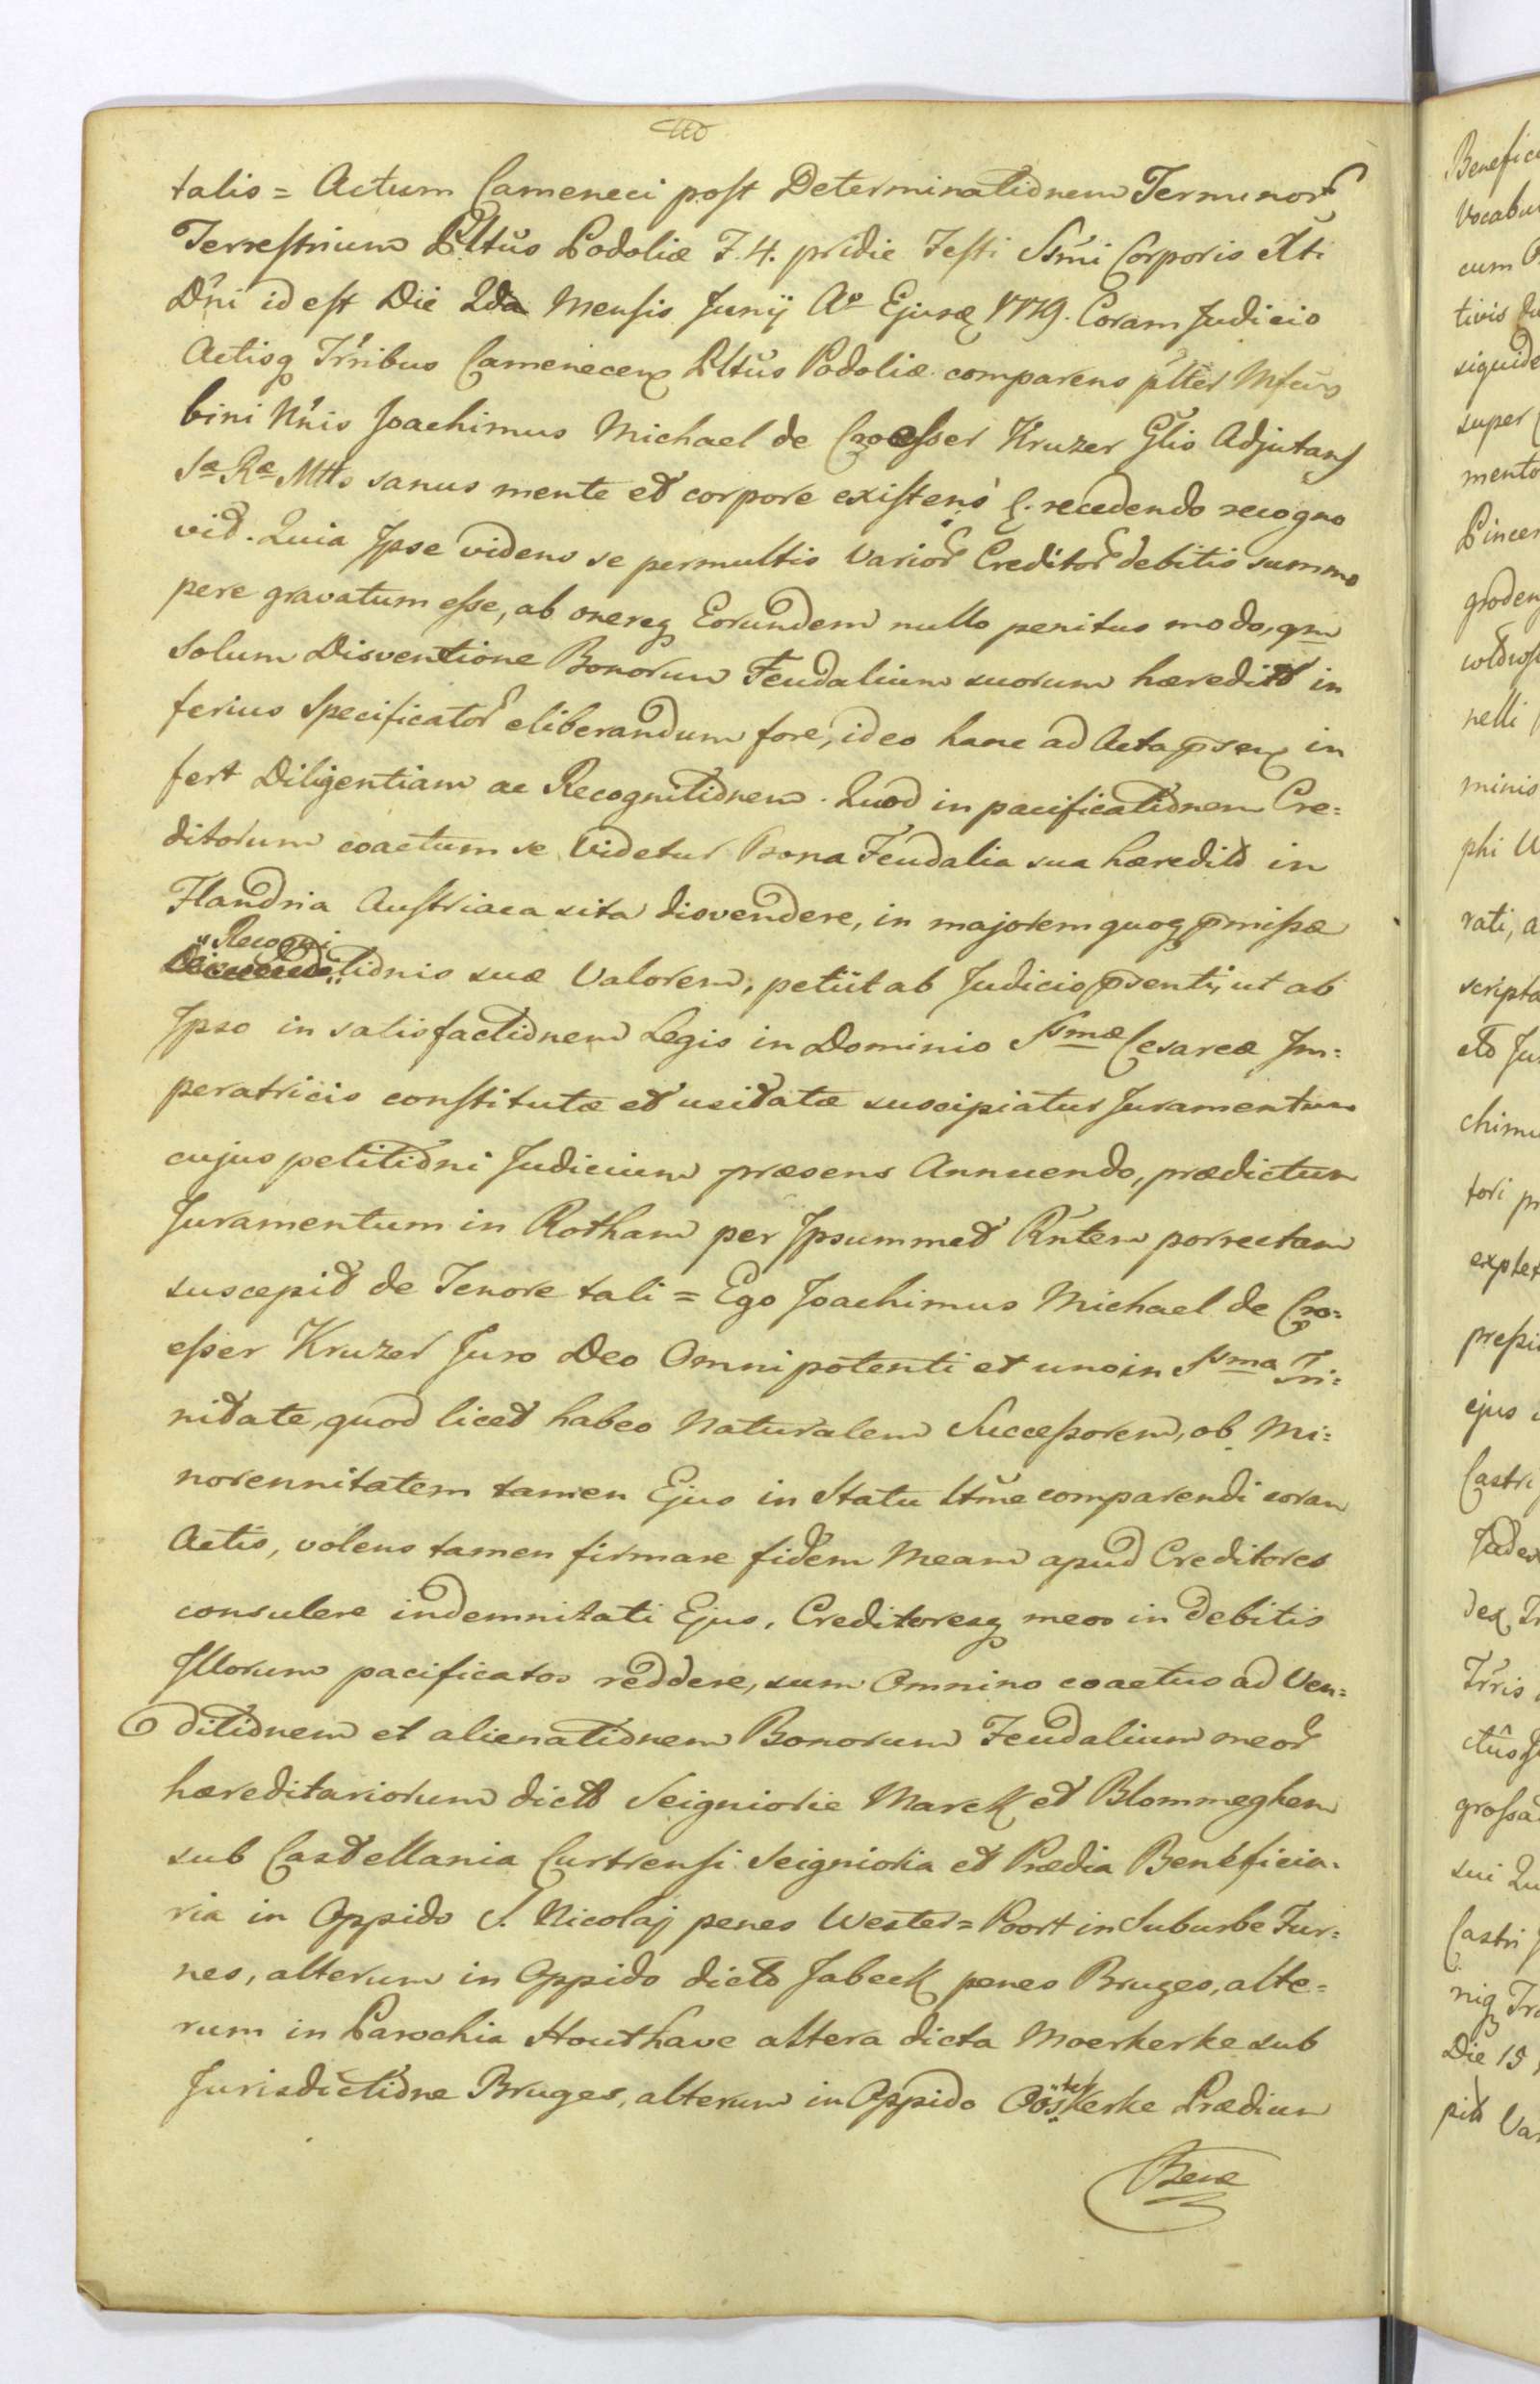 talis = Actum Cameneci post Determinationem Terminor
Terrestrium Pltus Podoliæ F. 4. pridie Festi Ssmi Corporis Xti
Dni id est Die 2da Mensis Junij Ao Ejusq 1779. Coram Judicio
Actisq Trribus Camenecen Pltus Podoliæ comparens plter Mfcus
bini Nris Joachimus Michael de Croesser Kruzer Glis Adjutans
Sæ Ræ Mttis sanus mente et corpore existens s. recedendo recogno
vit. Quia Ipse videns se permultis Varior Creditor debitis summo
pere gravatum esse, ab onereq Eorundem nullo penitus modo, qm
solum Disventione Bonorum Feudalium suorum hæredit in
ferius Specificator eliberandum fore, ideo hanc ad Acta psen in
fert Diligentiam ac Recognitionem. Quod in pacificationem Cre=
ditorum coactum se Videtur Bona Feudalia sua hæredit in
Flandria Austriaca sita disvendere, in majorem quoq pmissæ
Recogni
tionis suæ Valorem, petiit ab Judicio psenti, ut ab
Ipso in satisfactionem Legis in Dominio Ssmæ Cesareæ Im=
peratricis constitutæ et usitatæ suscipiatur Juramentum
cujus petitioni Judicium præsens Annuendo, prædictum
Juramentum in Rotham per Ipsummet Rntem porrectam
suscepit de Tenore tali = Ego Joachimus Michael de Cro=
esser Kruzer Juro Deo Omnipotenti et uno in Ssma Tri=
nitate, quod licet habeo Naturalem Successorem, ob Mi=
norennitatem tamen Ejus in Statu ltme comparendi coram
Actis, volens tamen firmare fidem Meam apud Creditores
consulere indemnitati Ejus, Creditoresq meos in Debitis
Illorum pacificatos reddere, sum Omnino coactus ad Ven=
ditionem et alienationem Bonorum Feudalium meor
hæreditariorum dict Seigniorie Marck et Blommeghem
sub Castellania Curtrensi Seignioria et Prædia Beneficia=
ria in Oppido S. Nicolaj penes Wester=Poort in Suburbe Fur=
nes, alterum in Oppido dicto Jabeck penes Bruges, alte=
rum in Parochia Houthave altera dicta Moerkerke sub
Jurisdictione Bruges, alterum in Oppido Oostkerke Prædium
Bene